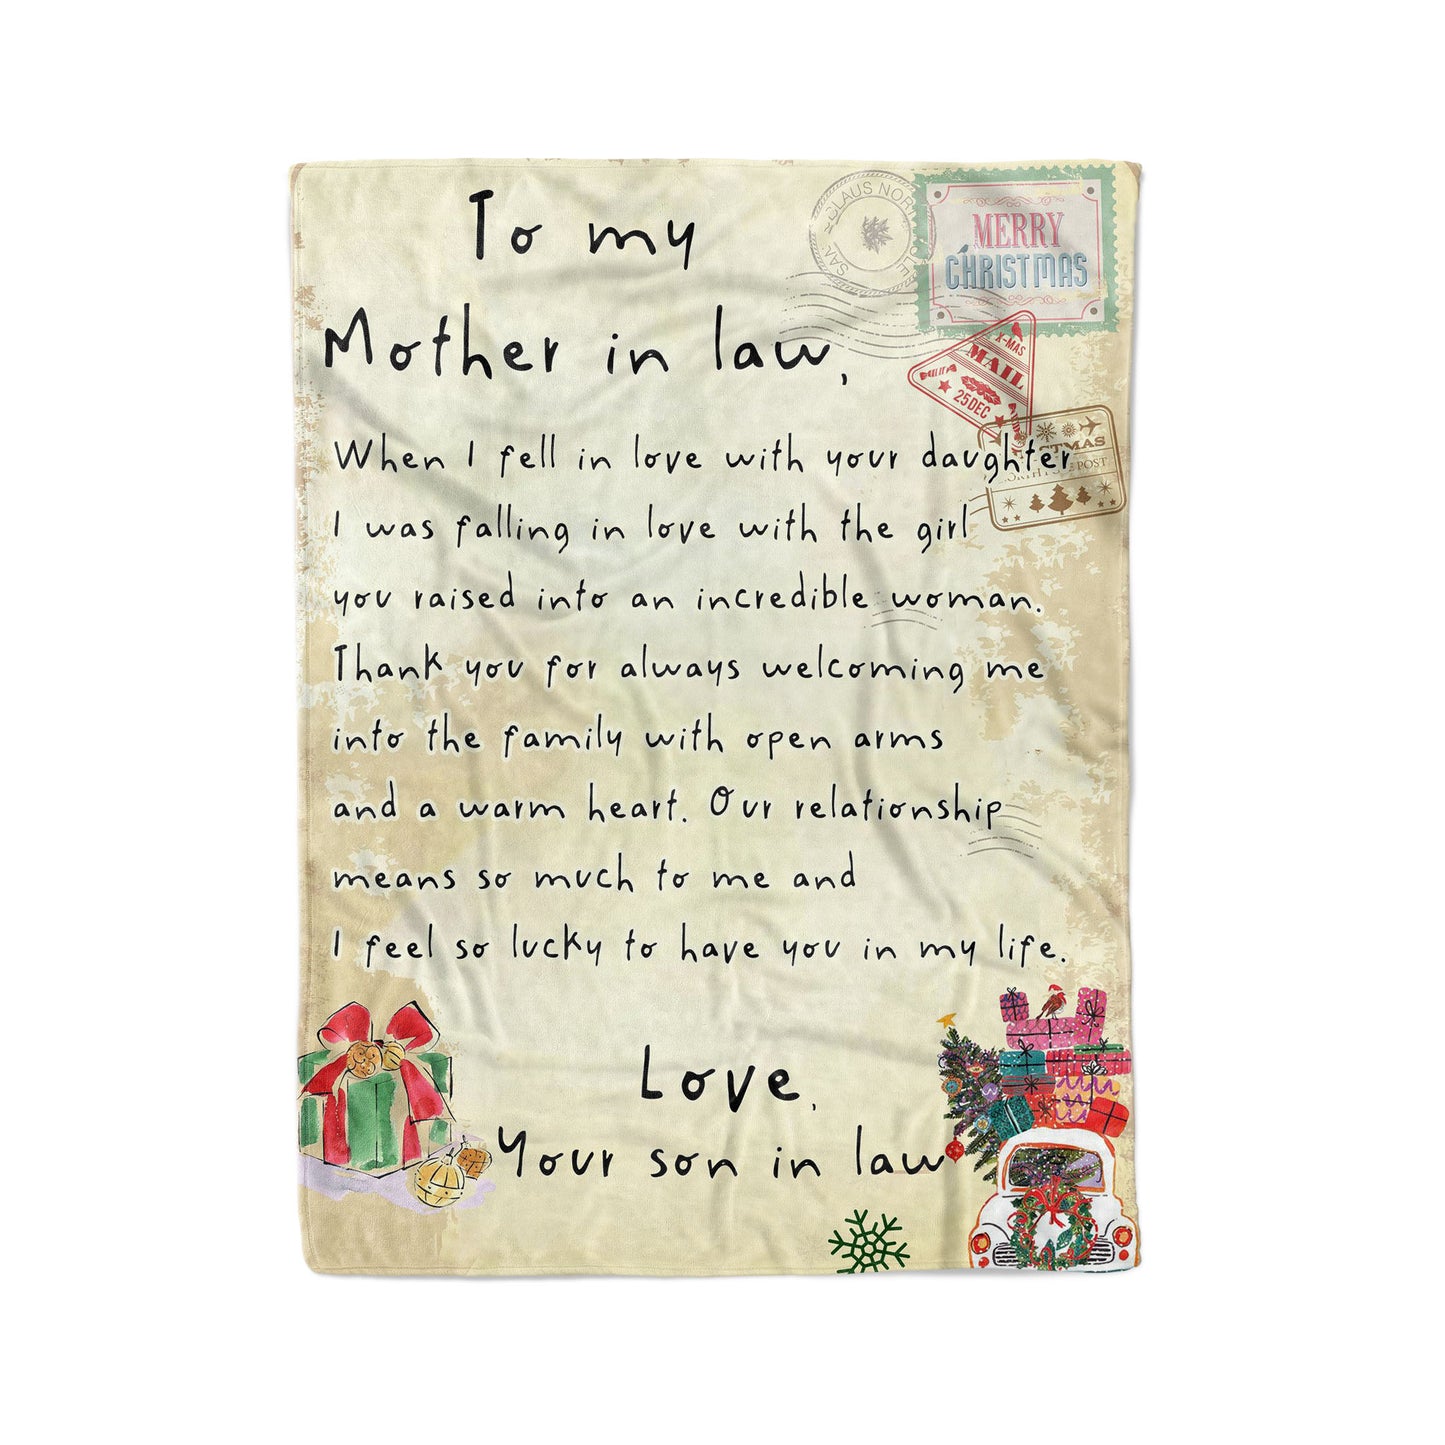 To my
Mother in law,
When I fell in love with your daughter
I was falling in love with the girl
you raised into an incredible woman.
Thank you for always welcoming me
into the family with open arms
and a warm heart. Our relationship
means so much to me and
I feel so lucky to have you in my life.
Love,
Your son in law
MERRY
CHRISTMAS
X-MAS
MAIL
25 DEC
POST